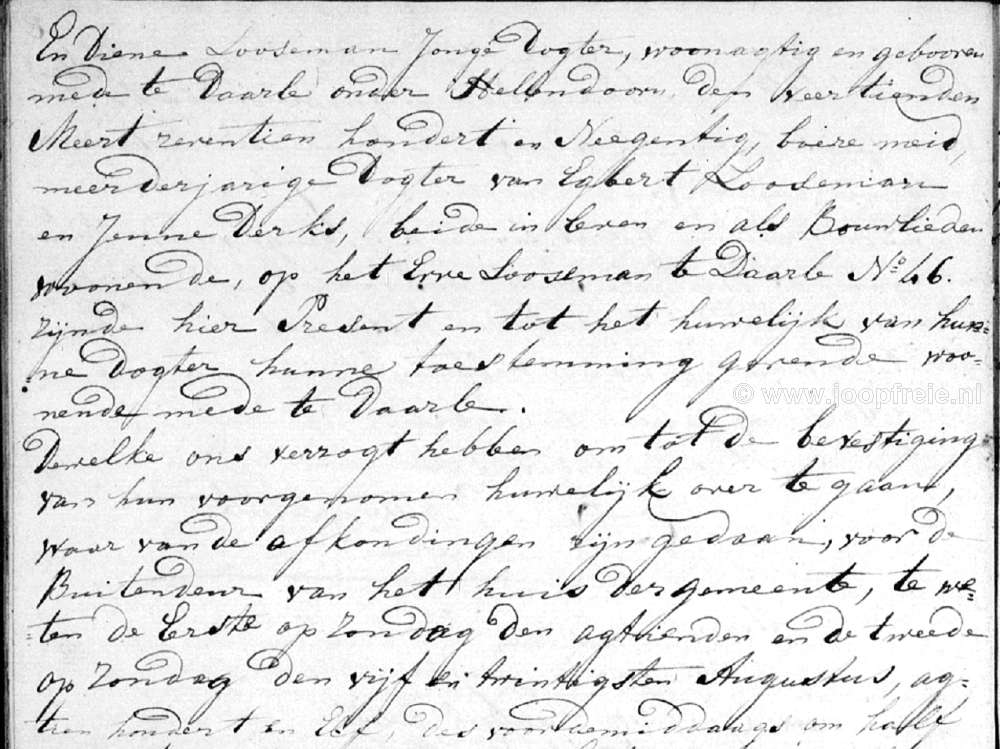 En Diene Looseman Jonge Dogter, woonagtig en gebooren
mede te Daarle onder Hellendoorn, den veertienden
Meert zeventien hondert en Neegentig, boere meid,
meerderjarige Dogter van Egbert Looseman
en Jenne Derks, beide in leven en als Bouwlieden
woonende, op het Erve Looseman te Daarle No. 46.
zijnde hier Present en tot het huwelijk van hun-
-ne Dogter hunne toestemming gevende woo-
© www.joopfreie.nl
nende mede te Daarle.
Dewelke ons verzogt hebben om tot de bevestiging
van hun voorgenomen huwelijk over te gaan,
waar van de afkondingen zijn gedaan, voor de
Buitendeur van het huis der gemeente, te we-
-ten de Erste op zondag den agtienden en de tweede
op zondag den vijf en twintigsten Augustus, ag-
tien hondert en Elf, des voordemiddaags om half